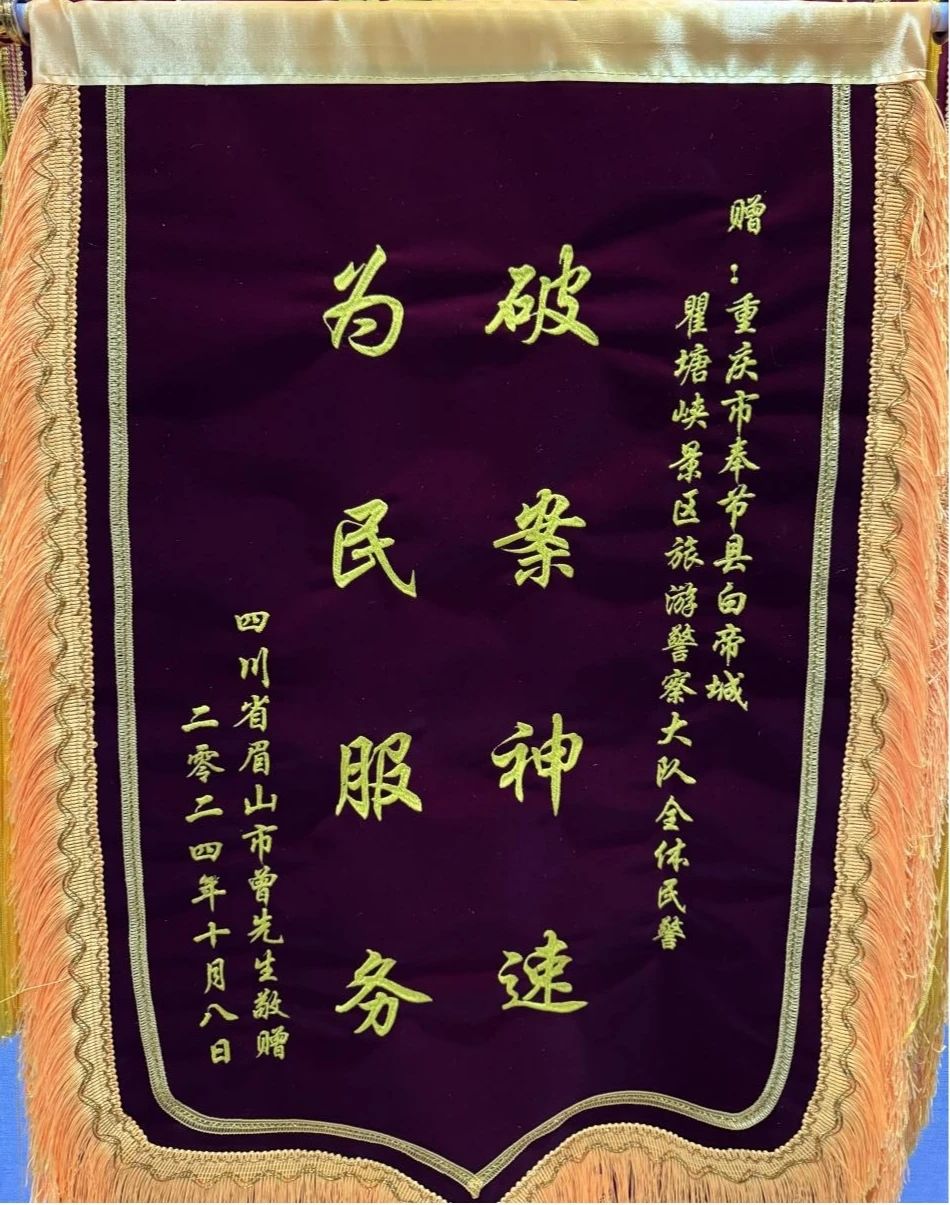 赠：重庆市奉节县白帝城
瞿塘峡景区旅游警察大队全体民警
破案神速
为民服务
四川省眉山市曾先生敬赠
二零二四年十月八日